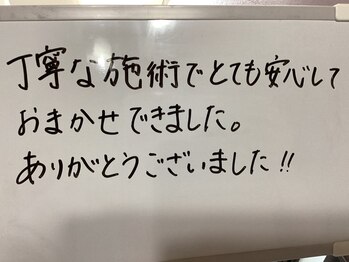 丁寧な施術でとても安心して
おまかせできました。
ありがとうございました!!